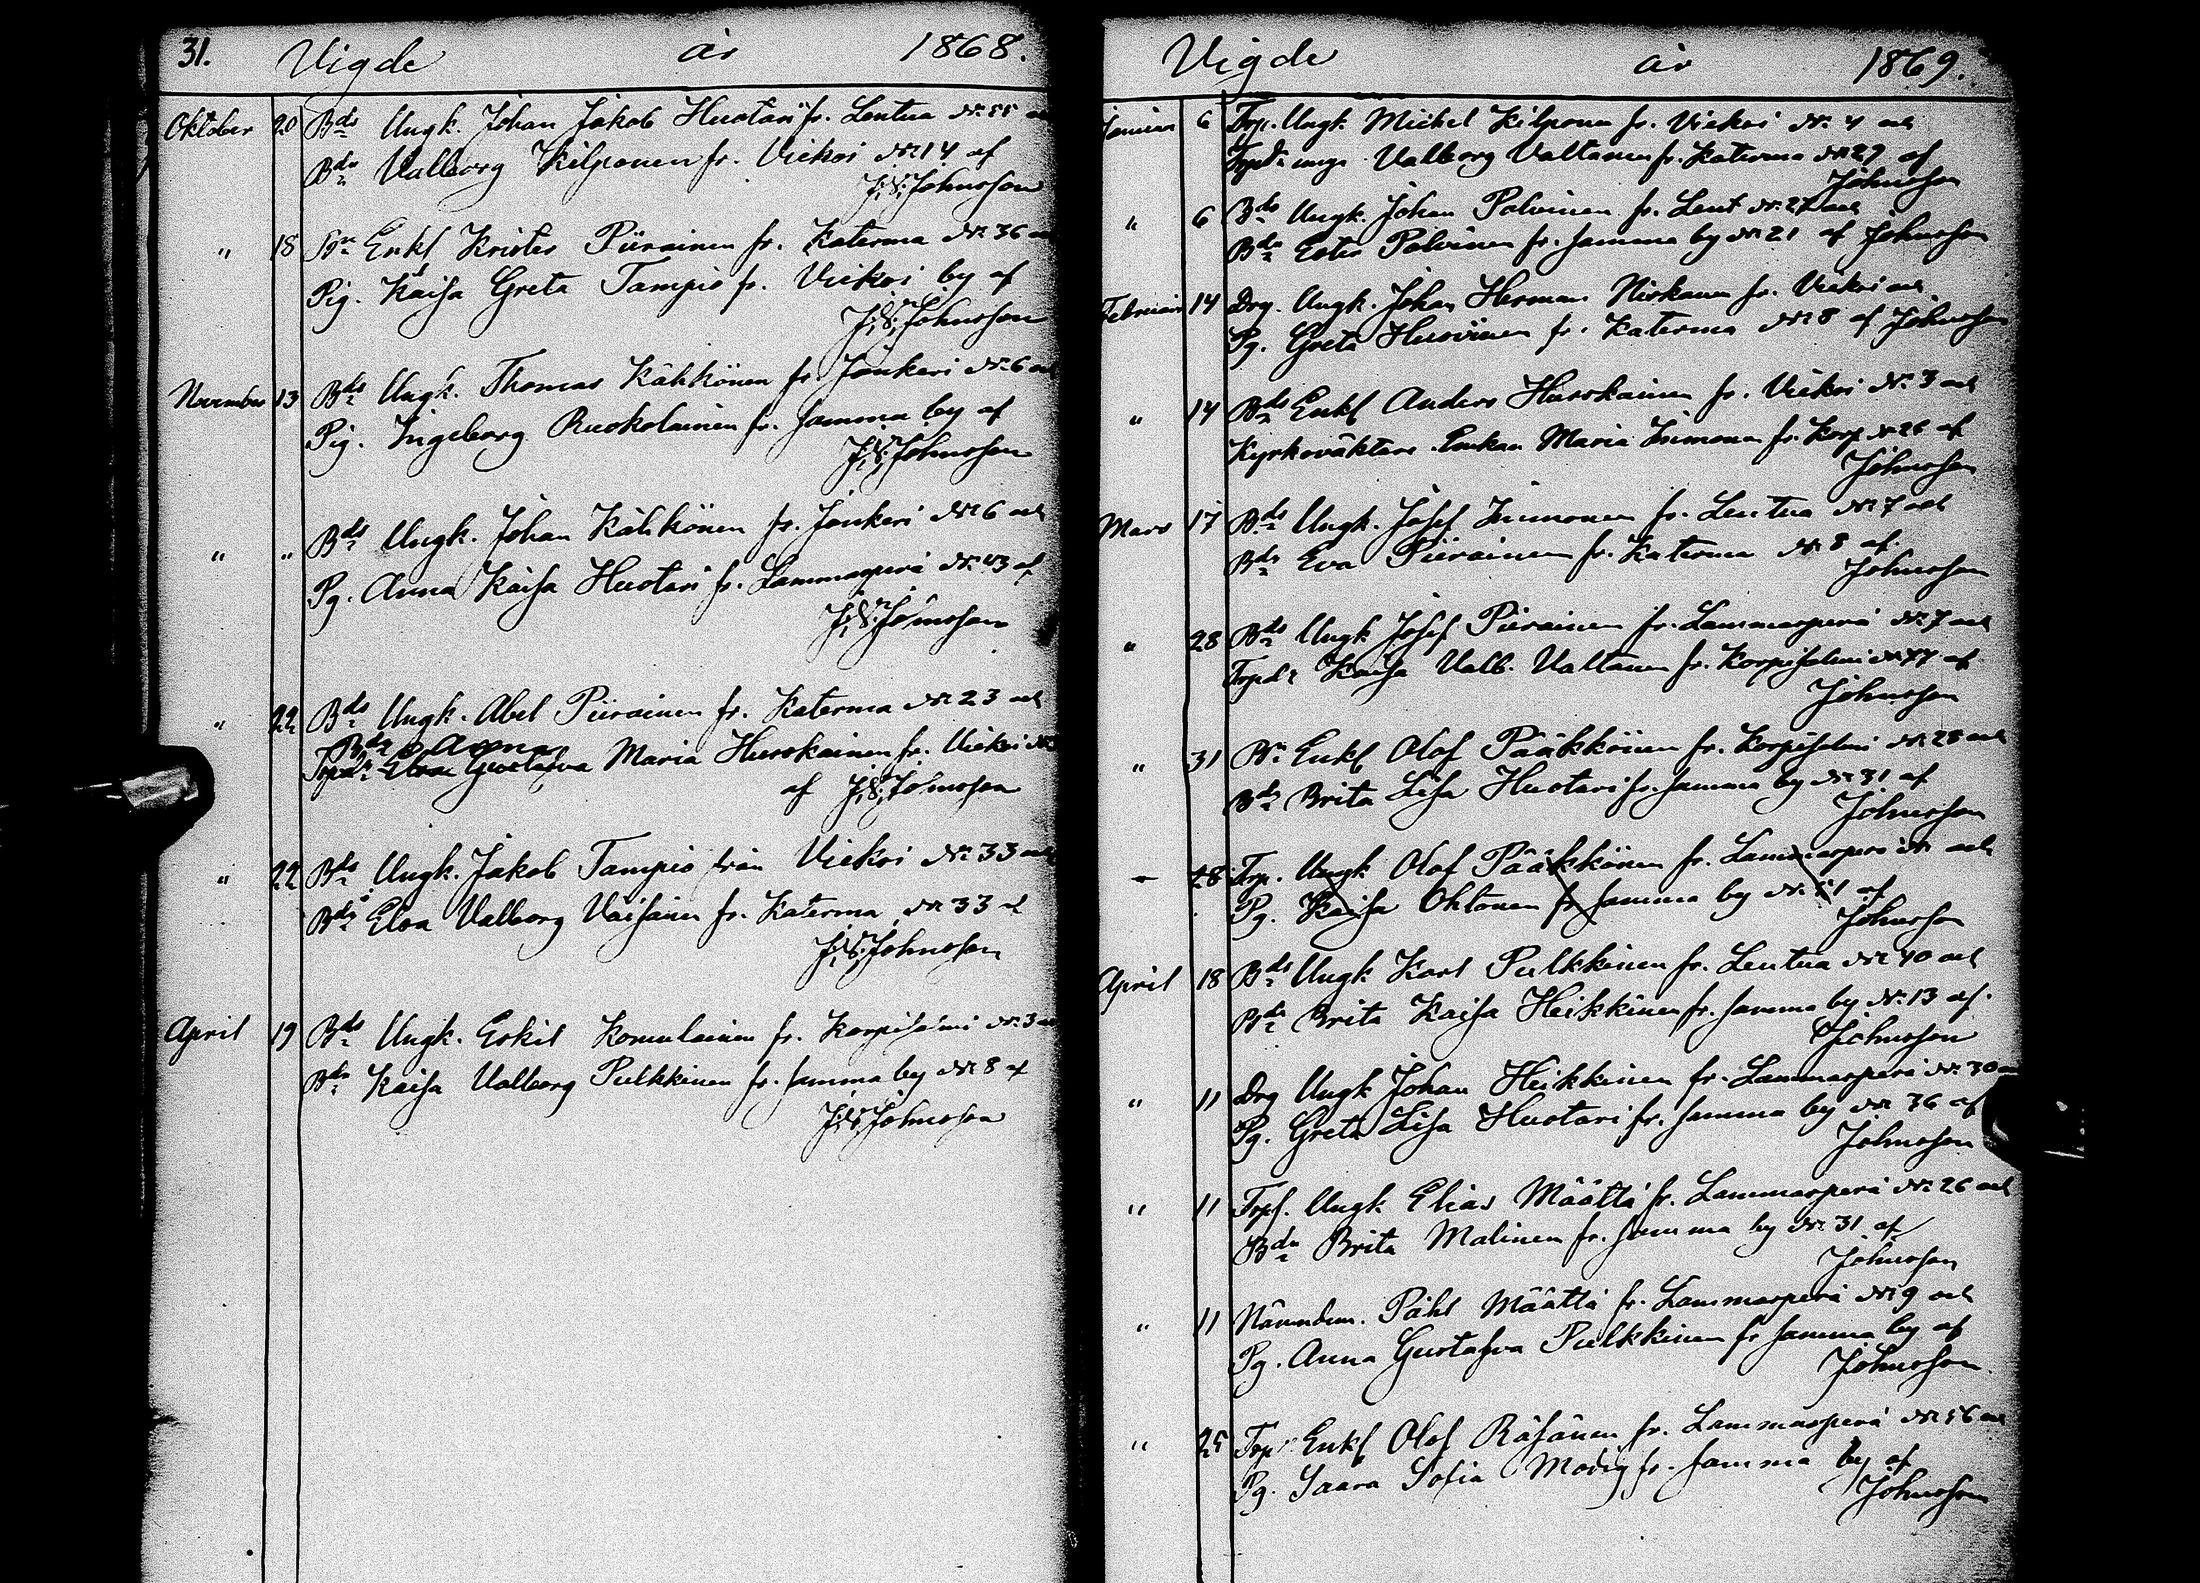 31. Vigde år 1868.
Oktober 20 Bds Ungk. Johan Jakob Huotari fr. Lentua No 55
Bdr Valborg Kilponen fr. Viekoi No 14 af
Johnsson
" 18 Enkl Krister Piirainen fr. Katerma No 36
Pig. Kaisa Greta Tampio fr. Viekoi by af
Johnsson
November 13 Bds Ungk. Thomas Kähkönen fr. Jonkeri No 6 och
Pig. Ingeborg Ruokolainen fr. samma by af
Johnsson
" " Bds Ungk. Johan Kähkönen fr. Jonkeri No 6 och
Pg. Anna Kaisa Huotari fr. Lammasperä No 43 af
Johnsson
" 22 Bds Ungk. Abel Piirainen fr. Katerma No 23 och
Bdr Anna
Elsa Gustafva Maria Hurskainen fr. Viekoi No
af Johnsson
" 22 Bds Ungk. Jakob Tampio från Viekoi No 33 och
Bdr Elsa Valborg Väisänen fr. Katerma No 33 af
Johnsson
April 19 Bds Ungk. Eskil Komulainen fr. Korpisalmi No 3
Bdr Kaisa Valborg Pulkkinen fr. samma by No 8 af
Johnsson
Vigde år 1869.
Januari 6 Trp. Ungk. Michel Kilponen fr. Viekoi No 4 och
Valborg Valtanen fr. Katerma No 29 af
Johnsson
" 6 Bds Ungk. Johan Polvinen fr. Lent No 27 och
Bdr Ester Polvinen fr. samma by No 21 af Johnsson
Februari 14 Drg. Ungk. Johan Herman Niskanen fr. Viekoi och
Pg. Greta Hurvinen fr. Katerma No 8 af Johnsson
" 14 Bds Enkl Anders Hurskainen fr. Viekoi No 3 och
Kyrkoväktare Enkan Maria Immonen fr. Korp No 26 af
Johnsson
Mars 17 Bds Ungk. Josef Immonen fr. Lentua No 7 och
Bdr Eva Piirainen fr. Katerma No 8 af
Johnsson
" 28 Bds Ungk Josef Piirainen fr. Lammasperä No 7 och
Trpdr Kaisa Valb. Valtanen fr. Korpisalmi No 77 af
Johnsson
" 31 Bn Enkl Olof Pääkkönen fr. Korpisalmi No 28 och
Bdr Brita Lisa Huotari fr. samma by No 31 af
Johnsson
28 Trp. Ungk Olof Pääkkönen fr. Lammasperä No och
Pg. Kaisa Ohtonen fr samma by No 51 af
Johnsson
April 18 Bds Ungk Karl Pulkkinen fr. Lentua No 40 och
Bdr Brita Kaisa Heikkinen fr. samma by No 13 af.
Johnsson
" 11 Drg Ungk Johan Heikkinen fr. Lammasperä No 30
Pg. Greta Lisa Huotari fr. samma by No 36 af
Johnsson
" 11 Trps. Ungk Elias Määttä fr. Lammasperä No 26 och
Bdr Brita Malinen fr. samma by No 31 af
Johnsson
" 11 Nämndem. Påhl Määttä fr. Lammasperä No 9 och
Pg. Anna Gustafva Pulkkinen fr samma by af
Johnsson
" 25 Trp Enkl Olof Räsänen fr. Lammasperä No 56
Pg. Saara Sofia Modig fr. samma by af
Johnsson